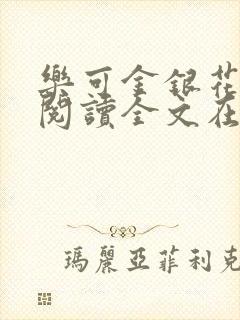 樂可金銀花
閱讀全文在
瑪麗亞菲利克